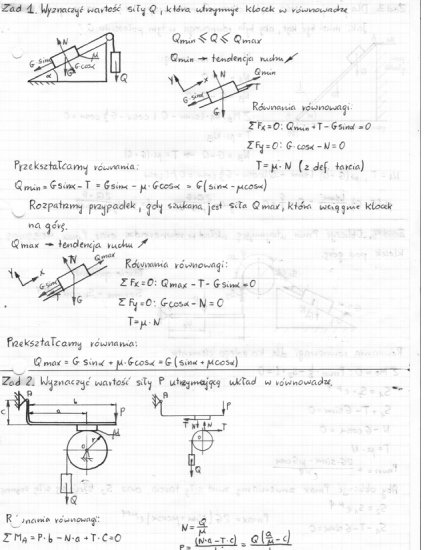 Zad 1. Wyznaczyć wartość siły Q, która utrzymuje klocek w równowadze
Qmin ⩽ Q ⩽ Qmax
Qmin → tendencja ruchu ↙
N
G sinα
G cosα
μ
α
G
Q
Y
X
N
Qmin
T
G sinα
G
Równania równowagi:
ΣFx=0: Qmin+T-Gsinα=0
ΣFy=0: G·cosα-N=0
T=μ·N (z def. tarcia)
Przekształcamy równania:
Qmin=Gsinα-T=Gsinα-μ·Gcosα=G(sinα-μcosα)
Rozpatrzmy przypadek, gdy szukana jest siła Qmax, która wciągnie klocek
na górę.
Qmax → tendencja ruchu ↗
Y
X
N
Qmax
G sinα
T
G
Równania równowagi:
ΣFx=0: Qmax-T-Gsinα=0
ΣFy=0: Gcosα-N=0
T=μ·N
Przekształcamy równania:
Qmax=G sinα+μ·Gcosα=G(sinα+μcosα)
Zad 2. Wyznaczyć wartość siły P utrzymującą układ w równowadze.
A
b
a
c
P
μ
r
O
Q
A
P
T
N
N
T
O
Q
Równania równowagi:
ΣMA=P·b-N·a+T·C=0
N=Q/μ
P=(N·a-T·C)/ = Q(a/μ-c)/